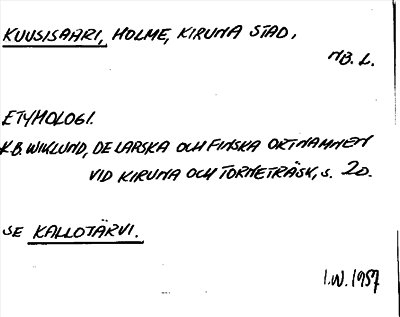 KUUSISAARI, HOLME, KIRUNA STAD,
NB. L.
ETYMOLOGI.
K.B. WIKLUND, DE LAPSKA OCH FINSKA ORTNAMNEN
VID KIRUNA OCH TORNETRÄSK, S. 20.
SE KALLOTÄRVI.
I.W. 1957